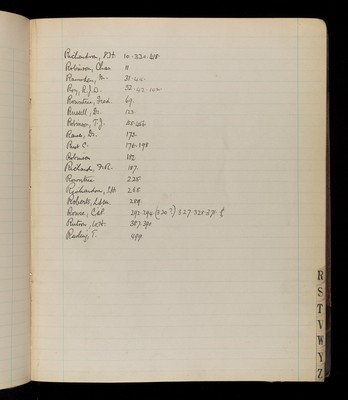 Richardson, D.H. 10-330-418
Robinson, Chas 11
Ramsden, Dr. 31-44-
Roy, R.J.D. 32-42-102
Rountree, Fred. 69.
Russell, Dr. 123
Robinson, T.J. 
Rowe, Dr. 173.
Rust C. 176-198
Robinson 182
Richards, F.R. 187
Rountree 225
Richardson, J.H. 265
Roberts, 289
Rowse, Col. 292-294-(320?) 327-328-371
Rution, W.H. 387-390
Radley, T. 499
R
S
T
V
W
Y
Z